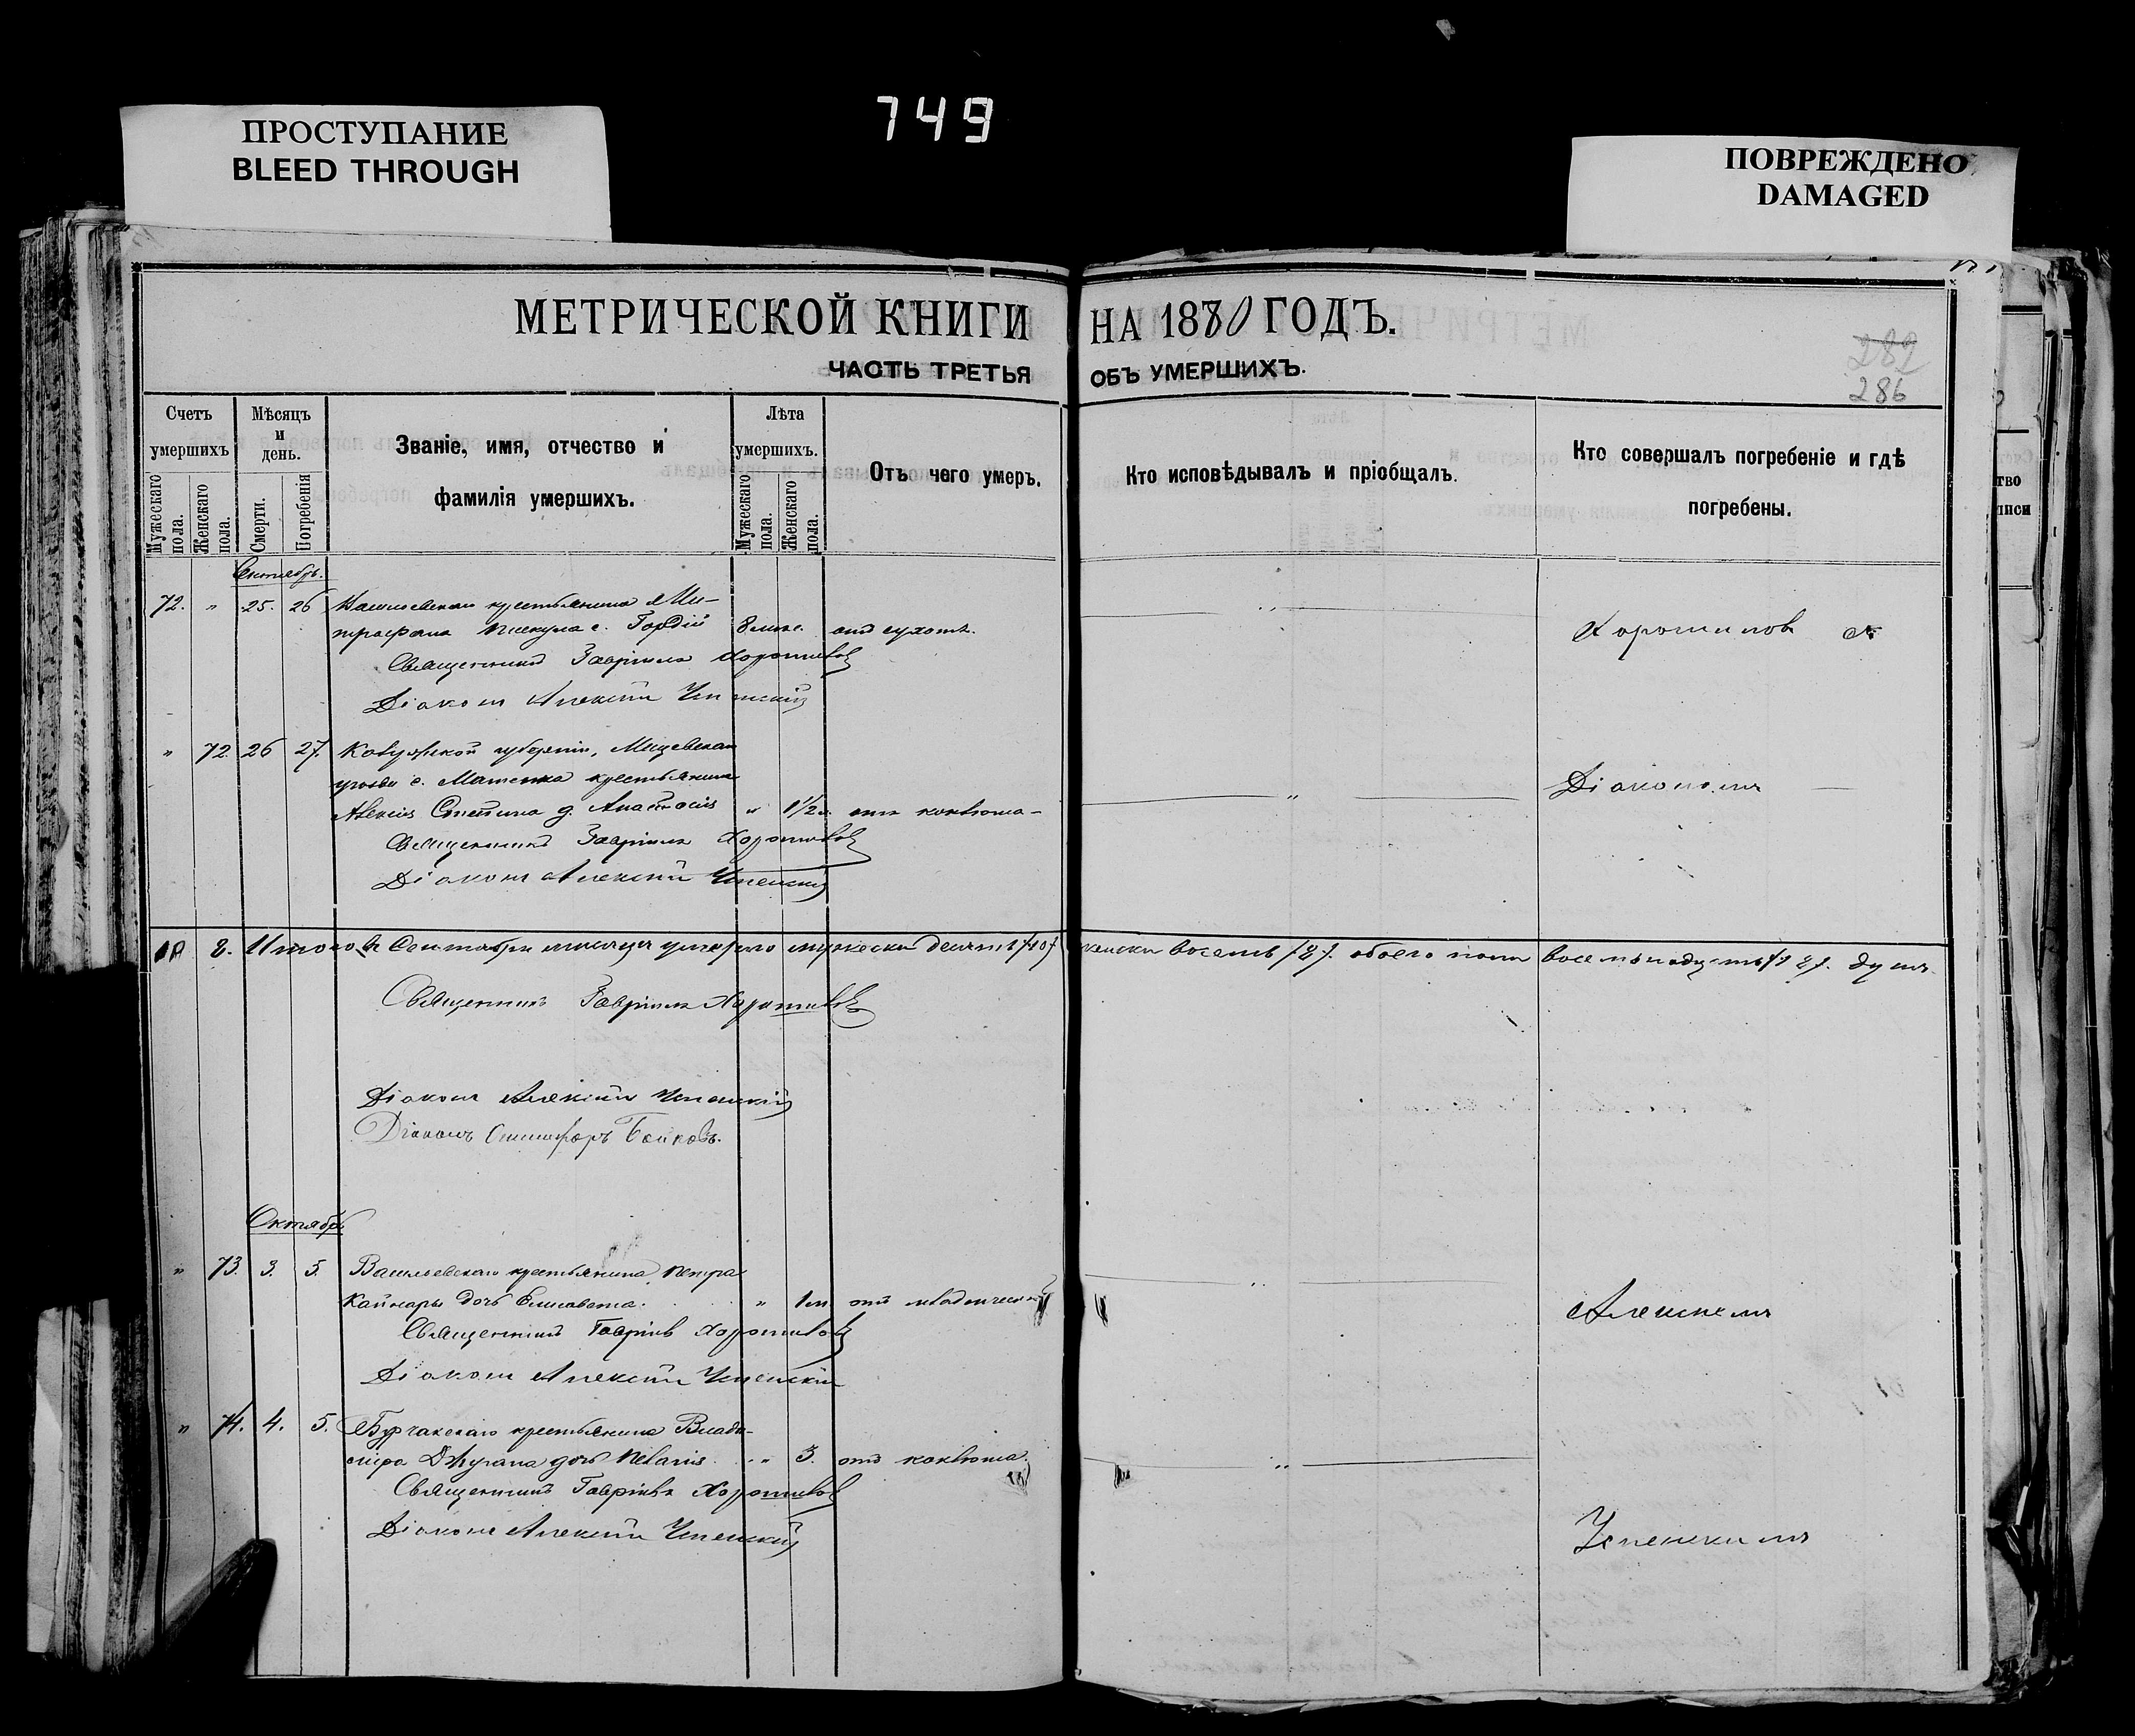 749
ПРОСТУПАНИЕ
BLEED THROUGH
ПОВРЕЖДЕНО
DAMAGED
МЕТРИЧЕСКОЙ КНИГИ НА 1880 ГОДЪ.
ЧАСТЬ ТРЕТЬЯ ОБЪ УМЕРШИХЪ.
282
286
Счетъ умершихъ
Мужескаго пола.
Женскаго пола.
Мѣсяцъ и день.
Смерти.
Погребенія
Званіе, имя, отчество и
фамилія умершихъ.
Лѣта умершихъ.
Мужескаго пола.
Женскаго пола.
Отъ чего умеръ.
Кто исповѣдывалъ и пріобщалъ.
Кто совершалъ погребеніе и гдѣ
погребены.
Сентябрь.
72. " 25. 26 крестьянина Ми-
трофана с. Гордій 8 мес. отъ сухотъ.
Священникъ Гавріилъ Хорошиловъ
Діаконъ Алексій Успенскій
" 72. 26 27. губерніи,
уезда с. крестьянина
Алексія д. Анастасія " 1 1/2 отъ коклюша
Священникъ Гавріилъ Хорошиловъ
Діаконъ Алексій Успенскій
Діакономъ
10 8. Итого въ Сентябрѣ мѣсяцѣ умерло мужеска десять /10/ женска восемь /8/. обоего пола восемьнадцать /18/. душъ.
Священникъ Гавріилъ Хорошиловъ
Діаконъ Алексій Успенскій
Діаконъ Бойковъ.
Октябрь
" 73. 3. 5. Васильевскаго крестьянина Петра
Кайнары дочь Елисавета. " 1 м отъ младенческой
Священникъ Гавріилъ Хорошиловъ
Діаконъ Алексій Успенскій
Алексіемъ
" 74. 4. 5. Бурчакскаго крестьянина Влади-
міра дочь Пелагія " 3. отъ коклюша.
Священникъ Гавріилъ Хорошиловъ
Діаконъ Алексій Успенскій
Успенскимъ